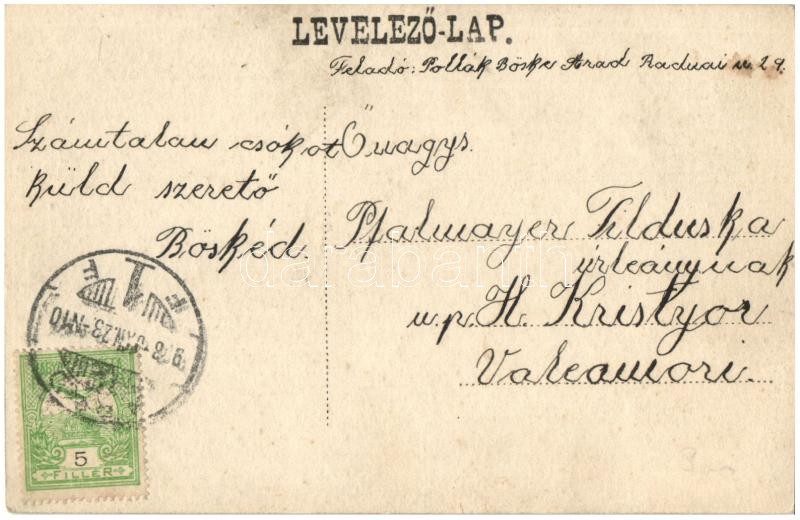 LEVELEZŐ-LAP.
Feladó: Pollák Böske Arad Radnai u. 29.
Számtalan csókot
küld szerető
Böskéd.
Őnagys.
Pfalmayer Tilduska
úrleánynak
u.p. H. Kristyor
Valeamori.
5
FILLÉR
darabanth